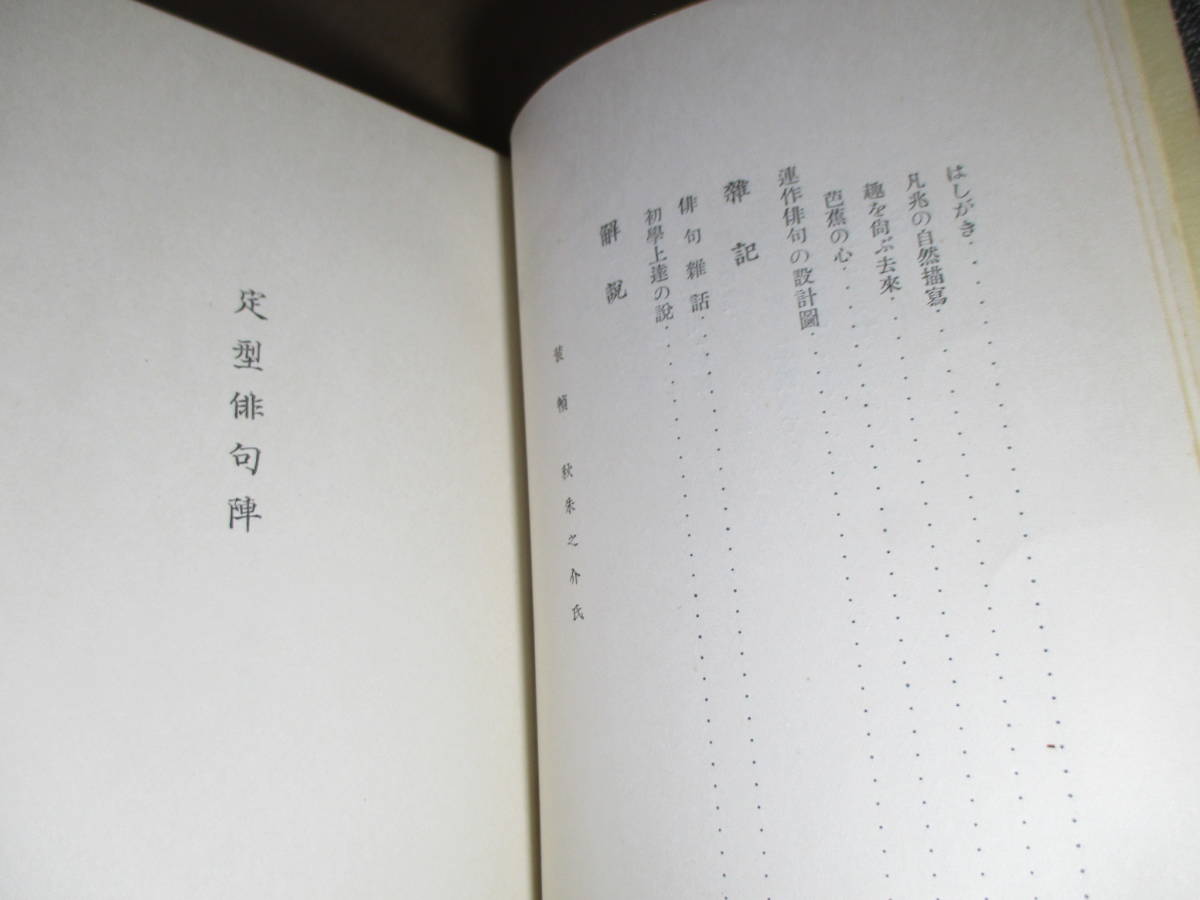 はしがき
凡兆の自然描寫
趣を尙ぶ去來
芭蕉の心
連作俳句の設計圖
雜記
俳句雜話
初學上達の說
解說
裝幀 秋朱之介氏
定型俳句陣